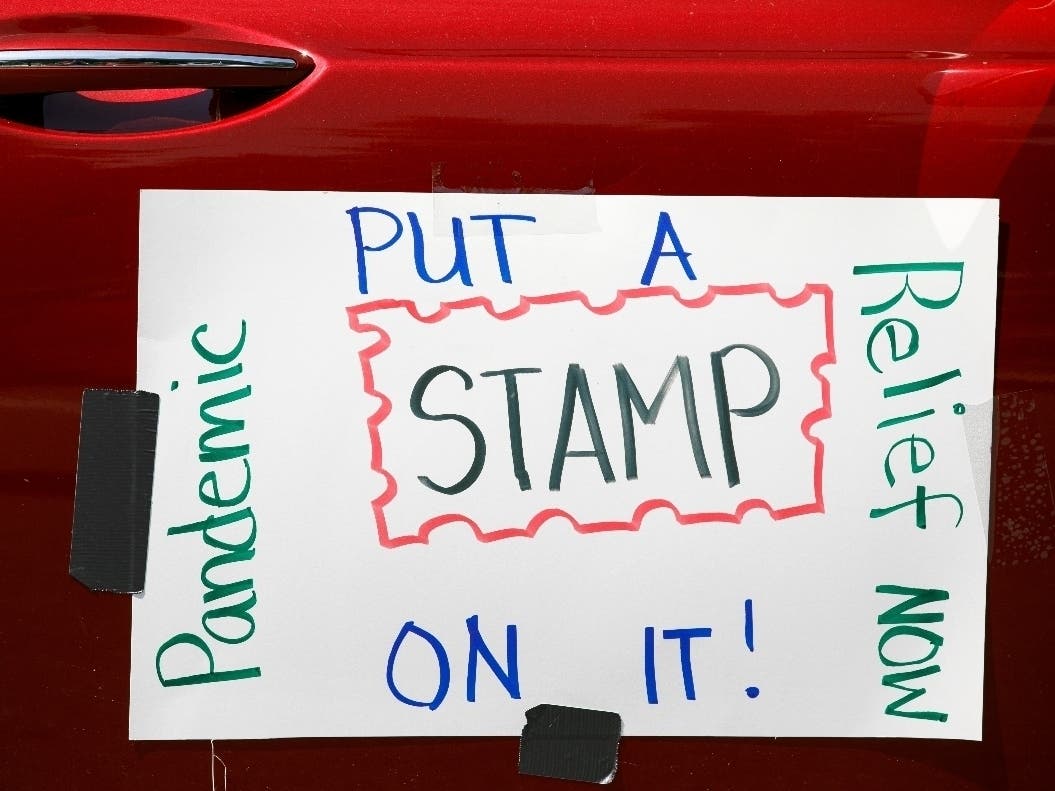 PUT A
STAMP
ON IT!
Pandemic
Relief NOW